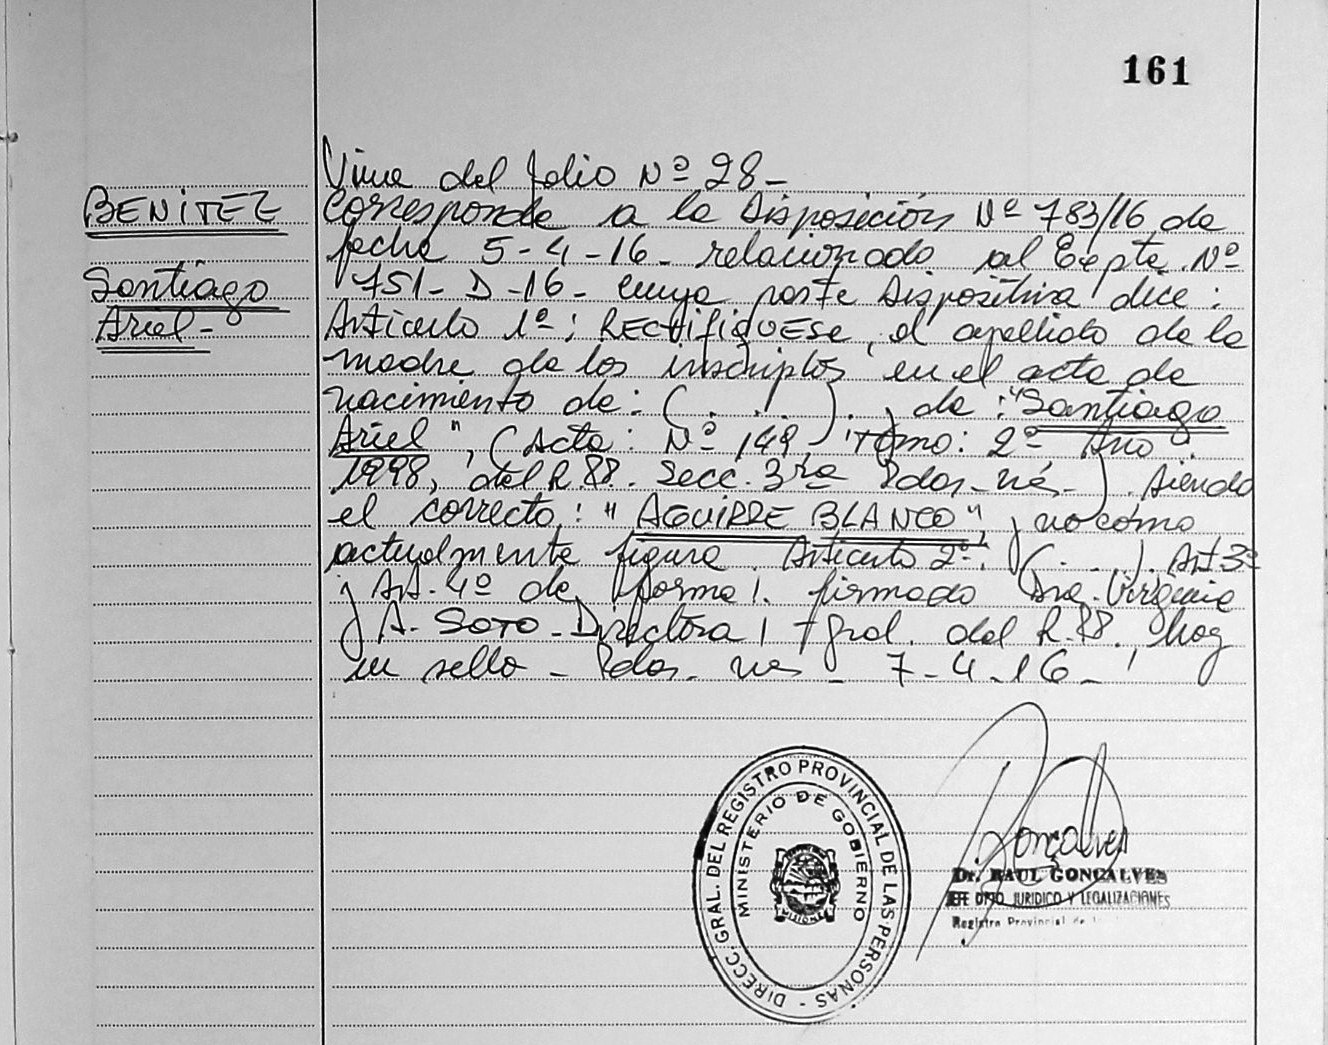 161
Viene del folio Nº 28-
BENITEZ
Corresponde a la Disposición Nº 783/16 de
fecha 5-4-16- relacionado al Expte. Nº
Santiago
751-D-16- cuya parte Dispositiva dice:
Ariel-
Articulo 1º: RECTIFIQUESE, el apellido de la
madre de los inscriptos en el acta de
nacimiento de: (. . . .). , de: "Santiago
Ariel", (Acta: Nº 149, Tomo: 2º Año
1998, del R.PP. Secc. 3ra Pdas-Mnes-). siendo
el correcto: "AGUIRRE BLANCO", y no como
actualmente figura. Articulo 2º: (. . . .). Art 3º
y Art. 4º de forma. firmado Dra. Virginia
A. SOTO-Directora Gral. del R.PP. hay
un sello - Pdas- Mnes - 7-4-16-
DIRECC. GRAL. DEL REGISTRO PROVINCIAL DE LAS PERSONAS -
MINISTERIO DE GOBIERNO
MISIONES
Gonçalves
Dr. RAUL GONCALVES
JEFE DPTO JURIDICO Y LEGALIZACIONES
Registro Provincial de